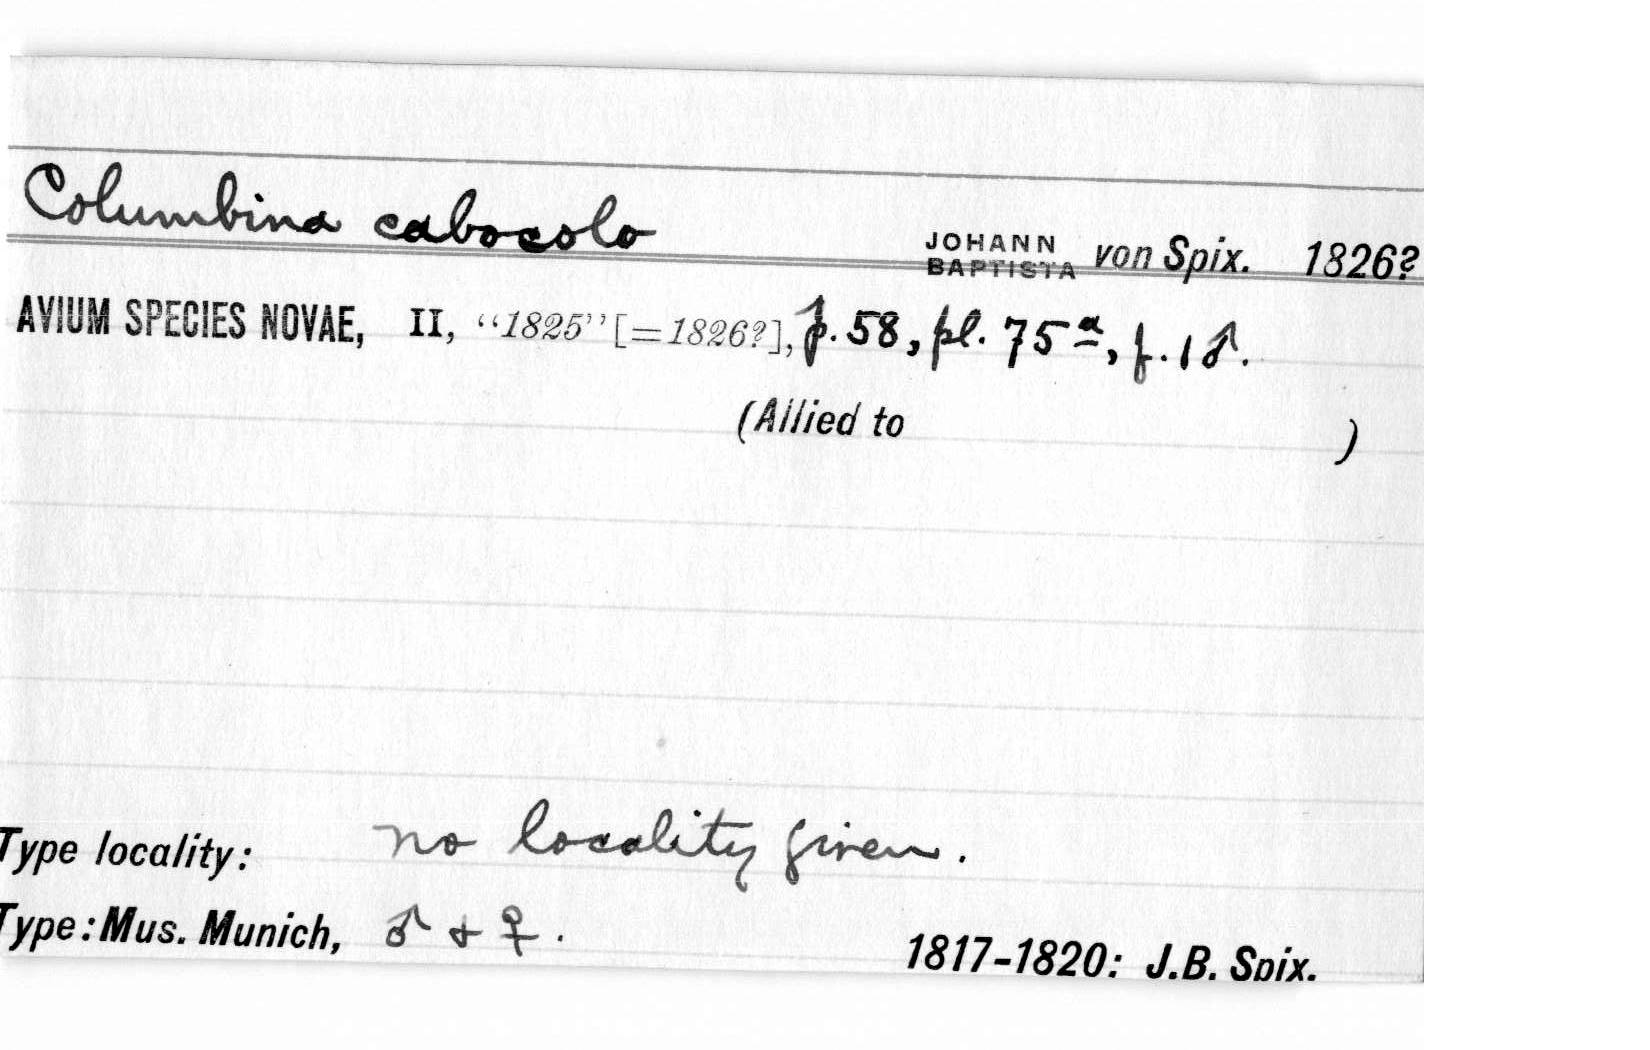 Columbina cabocolo JOHANN BAPTISTA von Spix. 1826?
AVIUM SPECIES NOVAE, II, "1825" [=1826?], p. 58, pl. 75ª, f. 1 ♂.
(Allied to )
Type locality: no locality given.
Type: Mus. Munich, ♂ + ♀.
1817-1820: J.B. Spix.